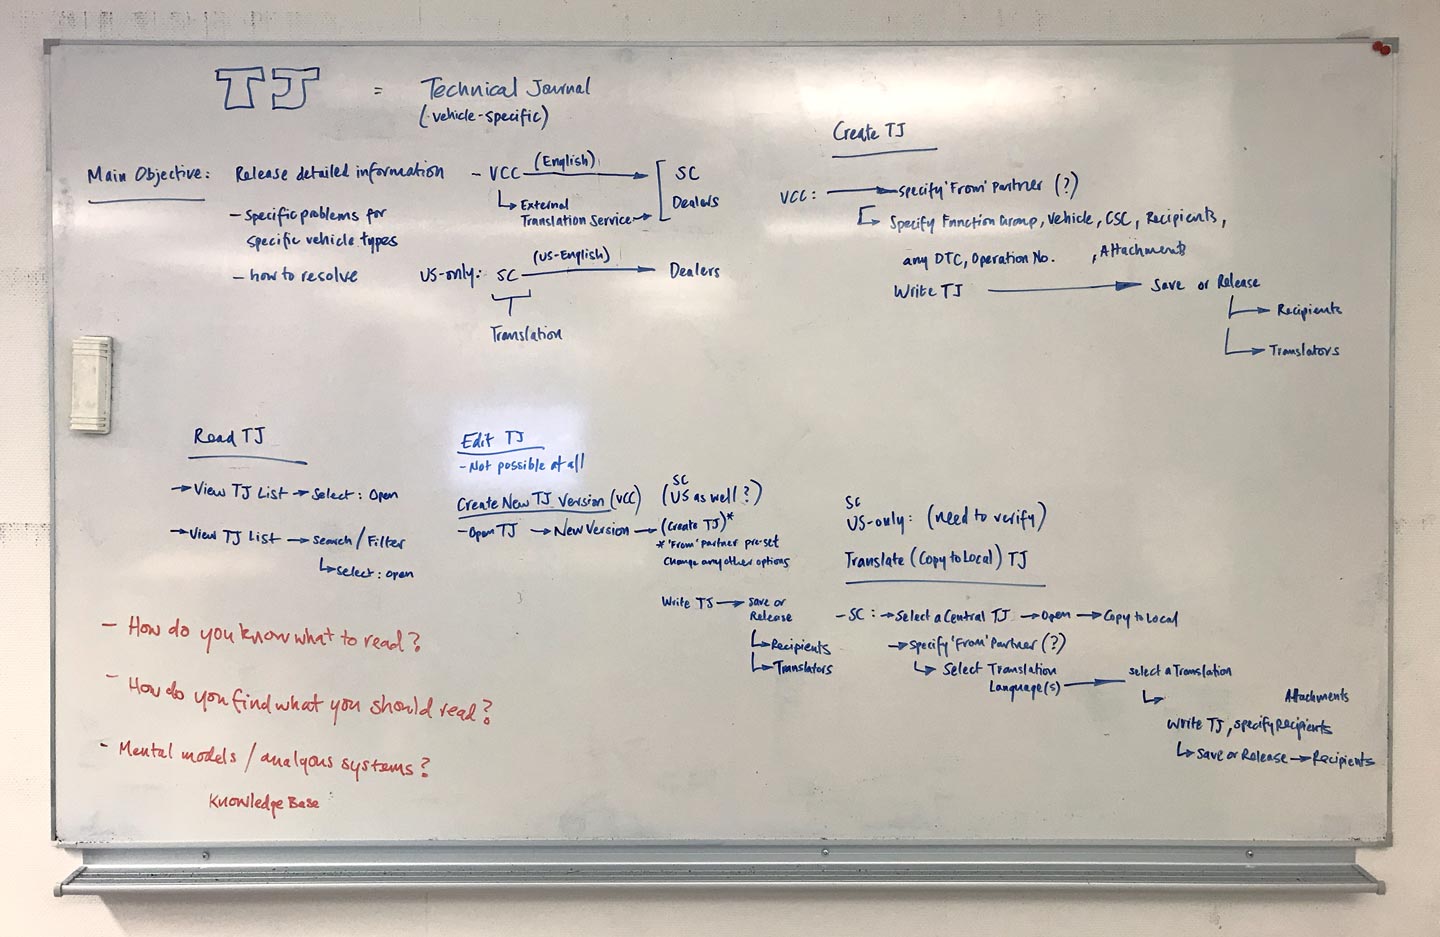 TJ = Technical Journal
(vehicle-specific)
Main Objective: Release detailed information
- Specific problems for
specific vehicle types
- how to resolve
- VCC (English) → SC
Dealers
↳ External
Translation Service →
US-only: SC (US-English) → Dealers
Translation
Create TJ
VCC: → specify 'From' Partner (?)
↳ Specify Function Group, Vehicle, CSC, Recipients,
any DTC, Operation No. , Attachments
Write TJ → Save or Release
↳ Recipients
↳ Translators
Read TJ
→ View TJ List → Select: Open
→ View TJ List → Search / Filter
↳ Select: Open
Edit TJ
- Not possible at all
Create New TJ Version (VCC) (US as well?)
SC
- Open TJ → New Version → (Create TJ)*
* 'From' Partner pre-set
Change any other options
Write TJ → Save or
Release
↳ Recipients
↳ Translators
SC
US-only: (need to verify)
Translate (Copy to Local) TJ
- SC: → Select a Central TJ → Open → Copy to Local
→ Specify 'From' Partner (?)
↳ Select Translation
Language(s) → select a Translation
↳
Attachments
Write TJ, specify Recipients
↳ Save or Release → Recipients
- How do you know what to read?
- How do you find what you should read?
- Mental models / analgous systems?
Knowledge Base